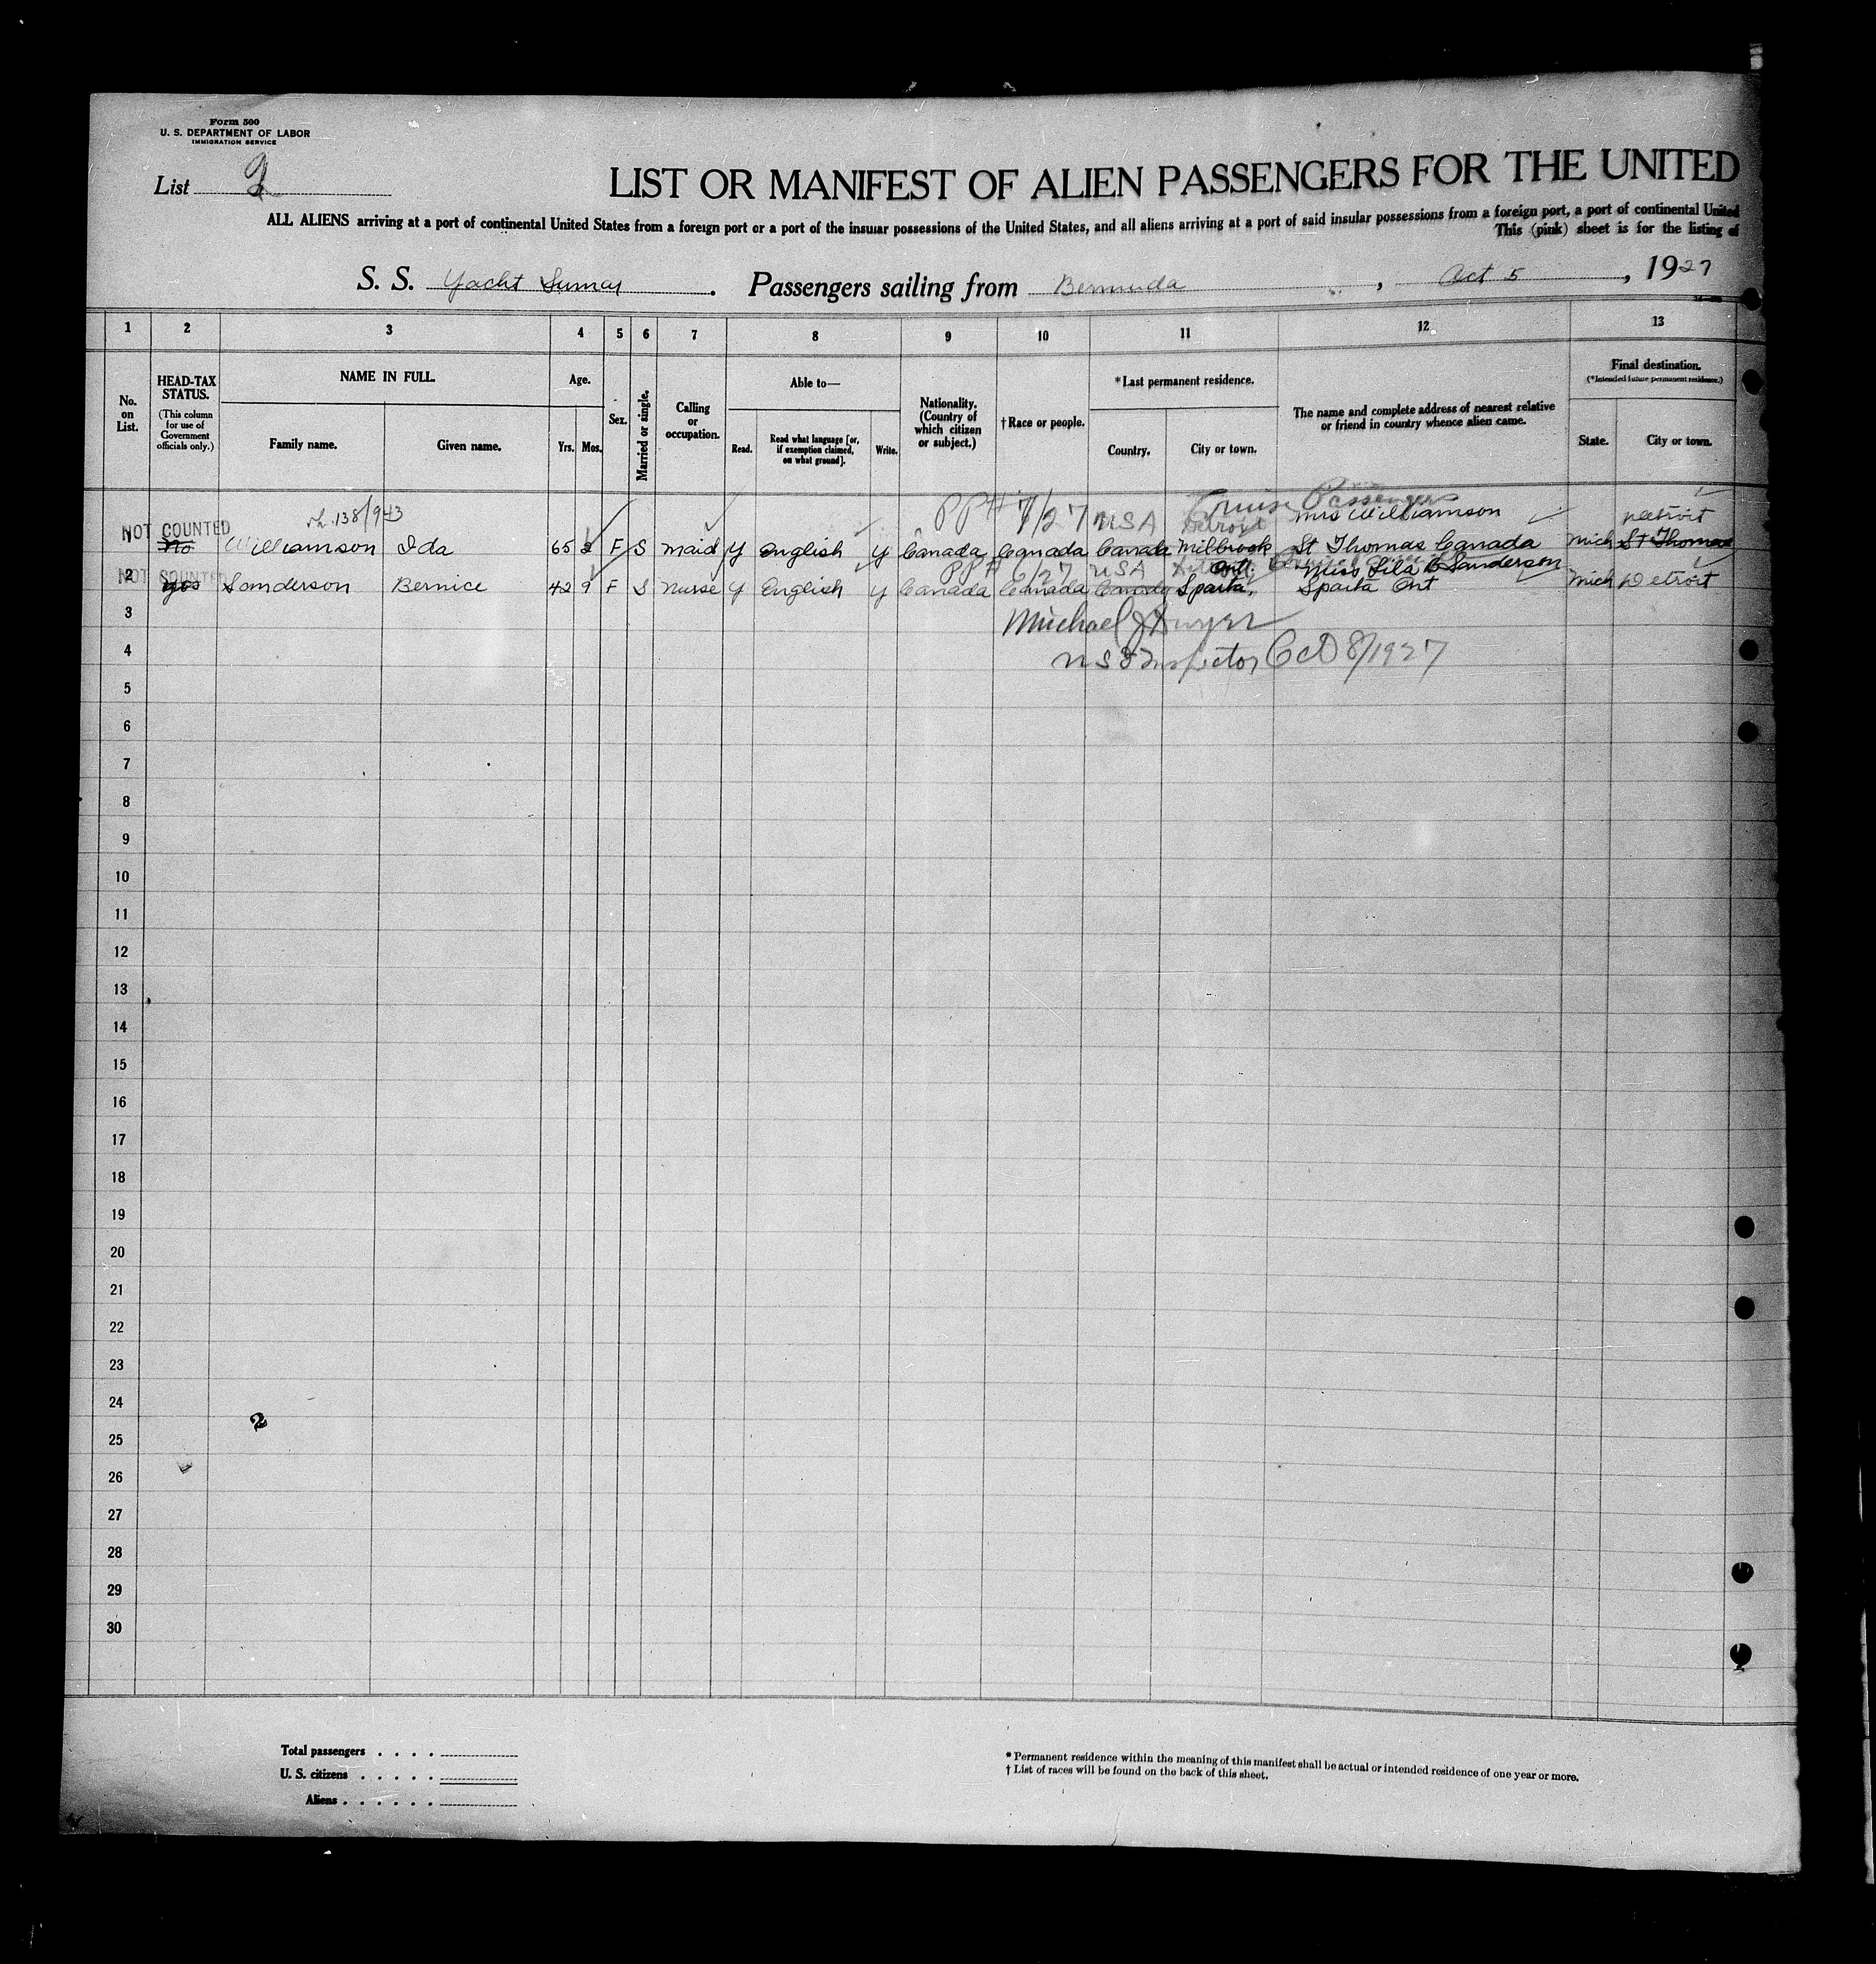 Form 500
U. S. DEPARTMENT OF LABOR
IMMIGRATION SERVICE
List 2
LIST OR MANIFEST OF ALIEN PASSENGERS FOR THE UNITED
ALL ALIENS arriving at a port of continental United States from a foreign port or a port of the insular possessions of the United States, and all aliens arriving at a port of said insular possessions from a foreign port, a port of continental United
This (pink) sheet is for the listing of
S. S. Yacht . Passengers sailing from Bermuda , Oct 5 , 1927
1 2 3 4 5 6 7 8 9 10 11 12 13
No. on List.
HEAD-TAX STATUS.
(This column for use of Government officials only.)
NAME IN FULL.
Family name. Given name.
Age.
Yrs. Mos.
Sex.
Married or single.
Calling or occupation.
Able to—
Read. Read what language [or, if exemption claimed, on what ground]. Write.
Nationality. (Country of which citizen or subject.)
†Race or people.
*Last permanent residence.
Country. City or town.
The name and complete address of nearest relative or friend in country whence alien came.
Final destination.
(*Intended future permanent residence.)
State. City or town.
138/943 PP# 7/27 USA Detroit Cruise Passenger Mrs Williamson Detroit
1 NOT COUNTED No Williamson Ida 65 F S Maid y English y Canada Canada Canada Milbrook Ont. St Thomas Canada Mich St Thomas
PP# /27 USA Miss Lila B Sanderson
2 NOT COUNTED yes Sanderson Bernice 42 9 F S Nurse y English y Canada Canada Canada Sparta, Sparta Ont Mich Detroit
3 Michael J Dwyer
4 U S I Inspector Oct 8/1927
5
6
7
8
9
10
11
12
13
14
15
16
17
18
19
20
21
22
23
24
2
25
26
27
28
29
30
Total passengers . . . .
U. S. citizens . . . . .
Aliens . . . . . .
* Permanent residence within the meaning of this manifest shall be actual or intended residence of one year or more.
† List of races will be found on the back of this sheet.